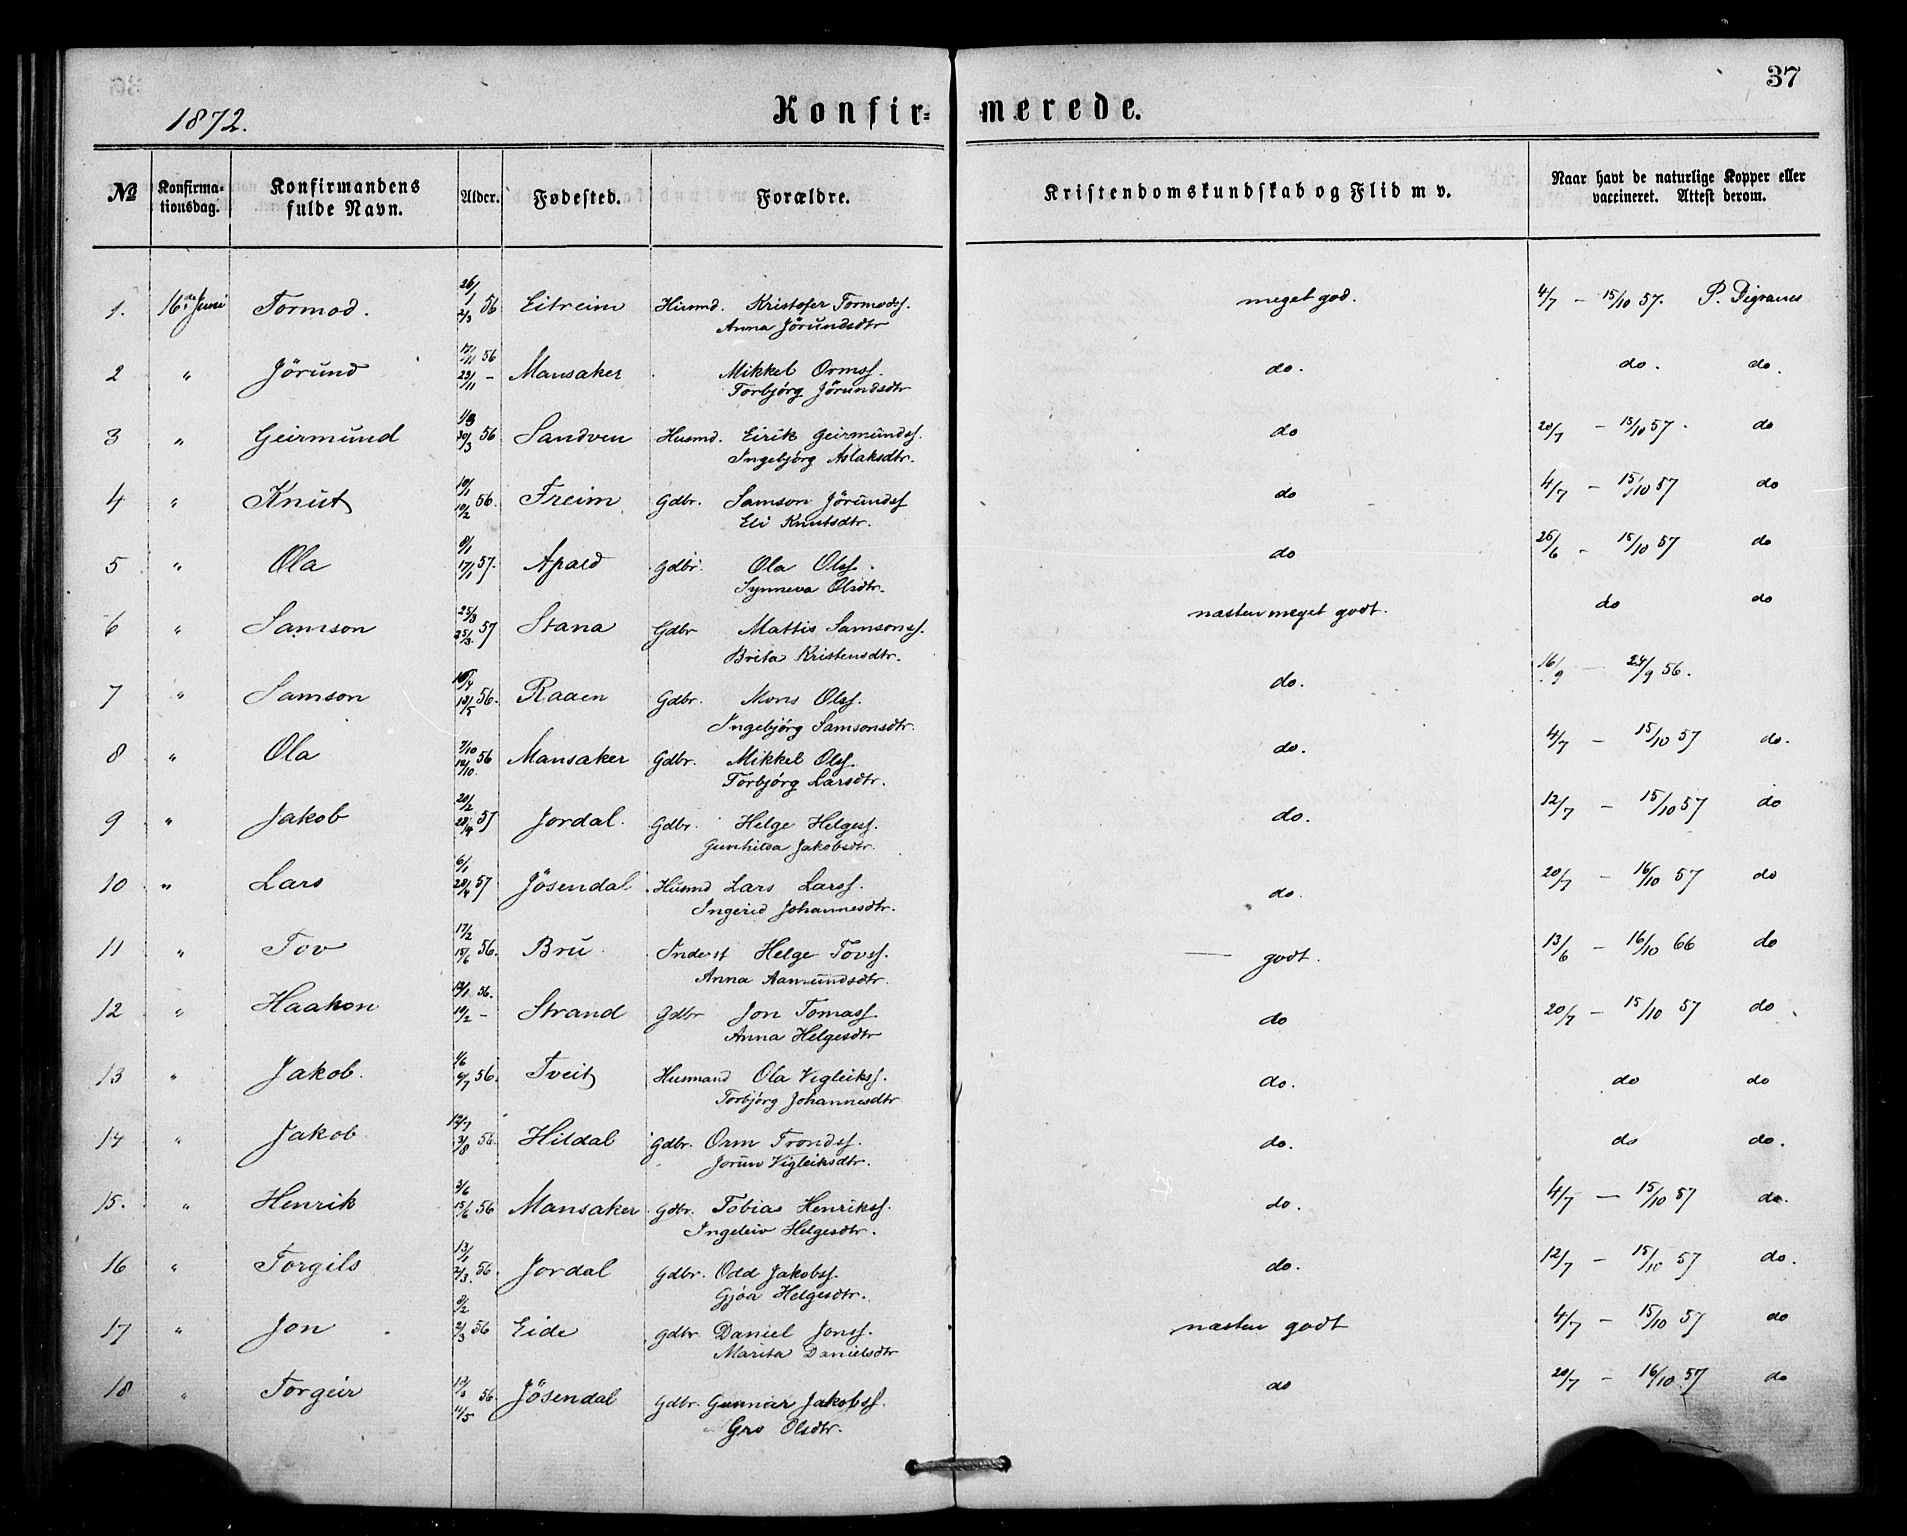 37
1872.
Konfir= merede.
№ Konfirma= tionsdag. Konfirmandens fulde Navn. Alder. Fødested. Forældre. Kristendomskundskab og Flid m v. Naar havt de naturlige Kopper eller vaccineret. Attest derom.
1. 16de Juni Tormod. 26/1 2/3 56 Eitreim Husmd. Kristofer Tormods. meget god. 4/7 — 15/10 57. P. Digranes
Anna Jörundsdtr
2 " Jörund 17/11 56 23/11 - Mansaker Mikkel Ormss. do. do. do.
Torbjörg Jörundsdtr
3 " Geirmund 30/3 56 Sandven Husmd. Eirik Geirmundss. do 20/7 - 15/10 57. do
Ingebjörg Aslaksdtr.
4 " Knut 10/1 10/2 56. Freim Gdbr. Samson Jörundss do 4/7 - 15/10 57 do
Eli Knutsdtr.
5 " Ola 8/1 17/1 57. Apald Gdbr. Ola Olss. do 26/6 - 15/10 57 do
Synneva Olsdtr.
6 " Samson 25/3 25/3 57 Stana Gdbr Mattis Samsonss. næsten meget godt. do do
Brita Kristensdtr.
7 " Samson 18/5 56. Raaen Gdbr. Mons Olss. do. 16/9 — 24/9 56.
Ingebjörg Samsonsdtr.
8 " Ola 7/10 12/10 56 Mansaker Gdbr. Mikkel Olss. do. 4/7 - 15/10 57 do.
Torbjörg Larsdtr.
9 " Jakob 20/2 28/4 57 Jordal. Gdbr. Helge Helgess. do. 12/7 - 15/10 57 do
Gunhilda Jakobsdtr.
10 " Lars 6/1 28/4 57 Jösendal Husmd Lars Larss. do. 20/7 - 16/10 57 do
Ingerid Johannesdtr.
11 " Tov 17/2 15/6 56. Bru Inderst Helge Tovss. — godt. 13/6 - 16/10 66 do
Anna Aamundsdtr.
12 " Haakon 12/1 56. 10/2 - Strand Gdbr Jon Tomass. do 20/7 - 15/10 57 do
Anna Helgesdtr
13 " Jakob. 1/6 6/7 56. Tveit Husmand Ola Vigleikss. do. do do
Torbjörg Johannesdtr
14 " Jakob 12/7 3/8 56. Hildal Gdbr. Orm Trondss. do. do do.
Jorun Vigleiksdtr.
15. " Henrik 3/6 15/6 56 Mansaker Gdbr. Tobias Henrikss. do. 4/7 — 15/10 57 do.
Ingeleiv Helgesdtr.
16 " Torgils 13/1 2/3. 56. Jordal Gdbr. Odd Jakobss. do. 12/7 - 15/10 57 do.
Gjöa Helgesdtr.
17 " Jon 8/2 2/3 56 Eide Gdbr. Daniel Jonss. næsten godt 4/7 - 15/10 57 do
Marita Danielsdtr
18 " Torgeir 11/5 56. Jösendal Gdbr. Gunnar Jakobss. do 20/7 - 16/10 57 do
Gro Olsdtr.